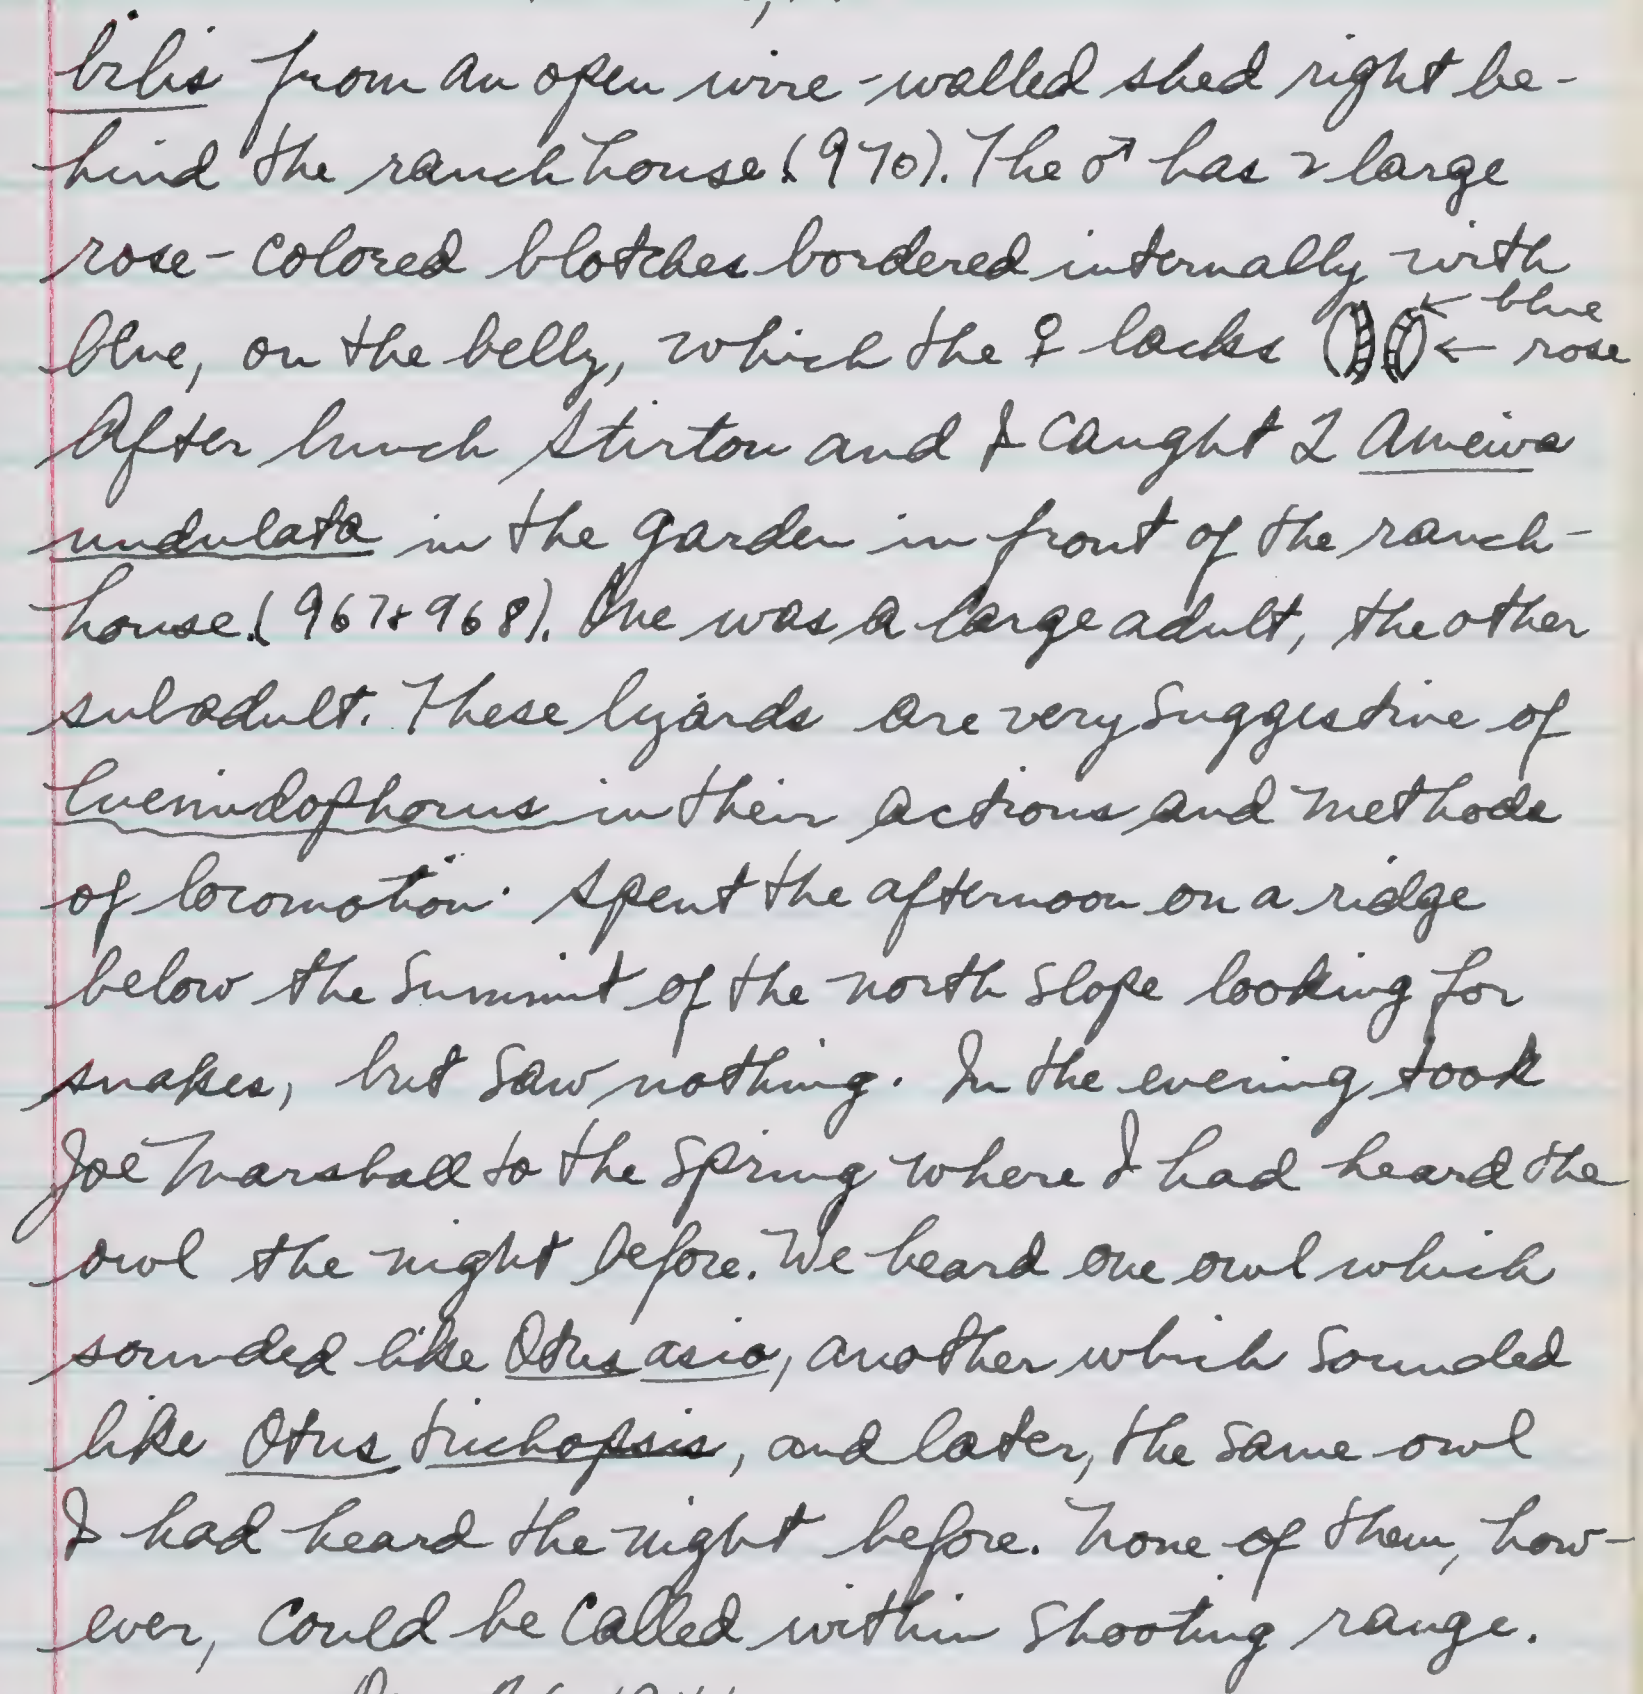 bilis from an open wire-walled shed right be-
hind the ranch house (970). The ♂ has 2 large
rose-colored blotches bordered internally with
blue, on the belly, which the ♀ lacks ← blue
← rose
After lunch Stirton and I caught 2 Ameiva
undulata in the garden in front of the ranch-
house (967+968). One was a large adult, the other
subadult. These lizards are very suggestive of
Cnemidophorus in their actions and methods
of locomotion. Spent the afternoon on a ridge
below the summit of the north slope looking for
snakes, but saw nothing. In the evening took
Joe Marshall to the spring where I had heard the
owl the night before. We heard one owl which
sounded like Otus asio, another which sounded
like Otus trichopsis, and later, the same owl
I had heard the night before. None of them, how-
ever, could be called within shooting range.